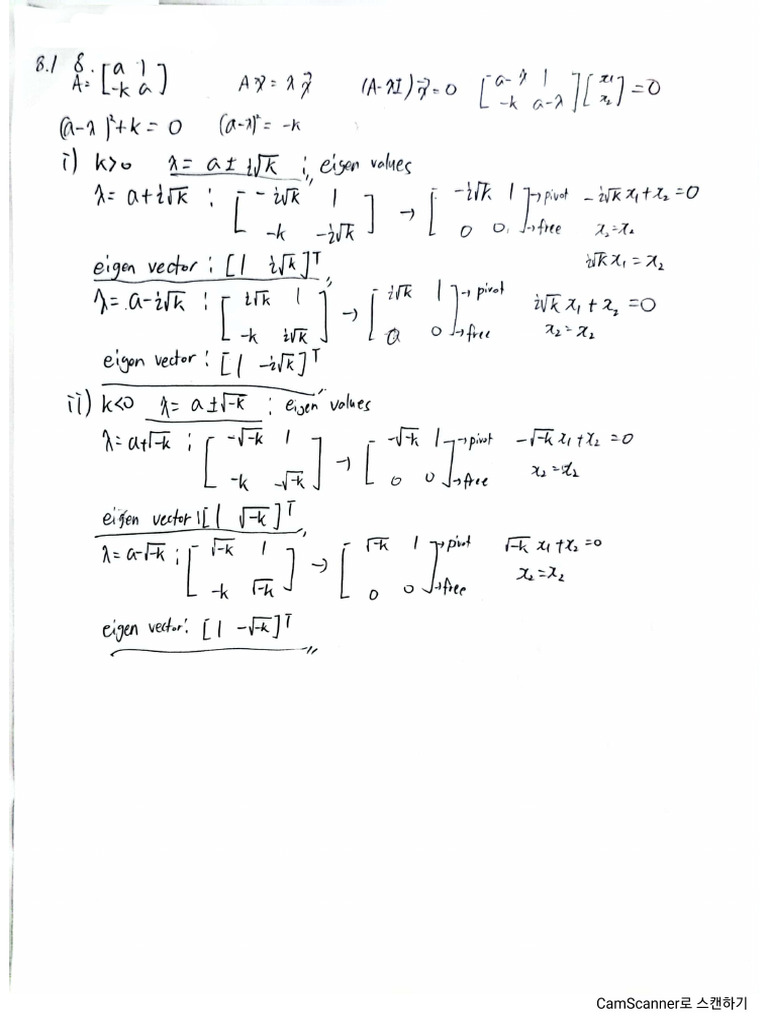 8.1 8.
A= [a 1
-k a] Ax⃗ = λx⃗ (A-λI)x⃗=0 [a-λ 1
-k a-λ][x₁
x₂]=0
(a-λ)²+k = 0 (a-λ)² = -k
i) k>0 λ= a ± i√k ; eigen values
λ= a+i√k ; [-i√k 1
-k -i√k] → [-i√k 1
0 0] →pivot →free -i√k x₁+x₂=0
x₂=x₂
i√k x₁ = x₂
eigen vector : [1 i√k]ᵀ
λ= a-i√k ; [i√k 1
-k i√k] → [i√k 1
0 0] → pivot →free i√k x₁ + x₂ =0
x₂=x₂
eigen vector : [1 -i√k]ᵀ
ii) k<0 λ= a±√-k : eigen values
λ= a+√-k ; [-√-k 1
-k -√-k] → [-√-k 1
0 0] →pivot →free -√-k x₁+x₂ =0
x₂=x₂
eigen vector : [1 √-k]ᵀ
λ= a-√-k ; [√-k 1
-k √-k] → [√-k 1
0 0] →pivot →free √-k x₁+x₂=0
x₂=x₂
eigen vector: [1 -√-k]ᵀ
CamScanner로 스캔하기